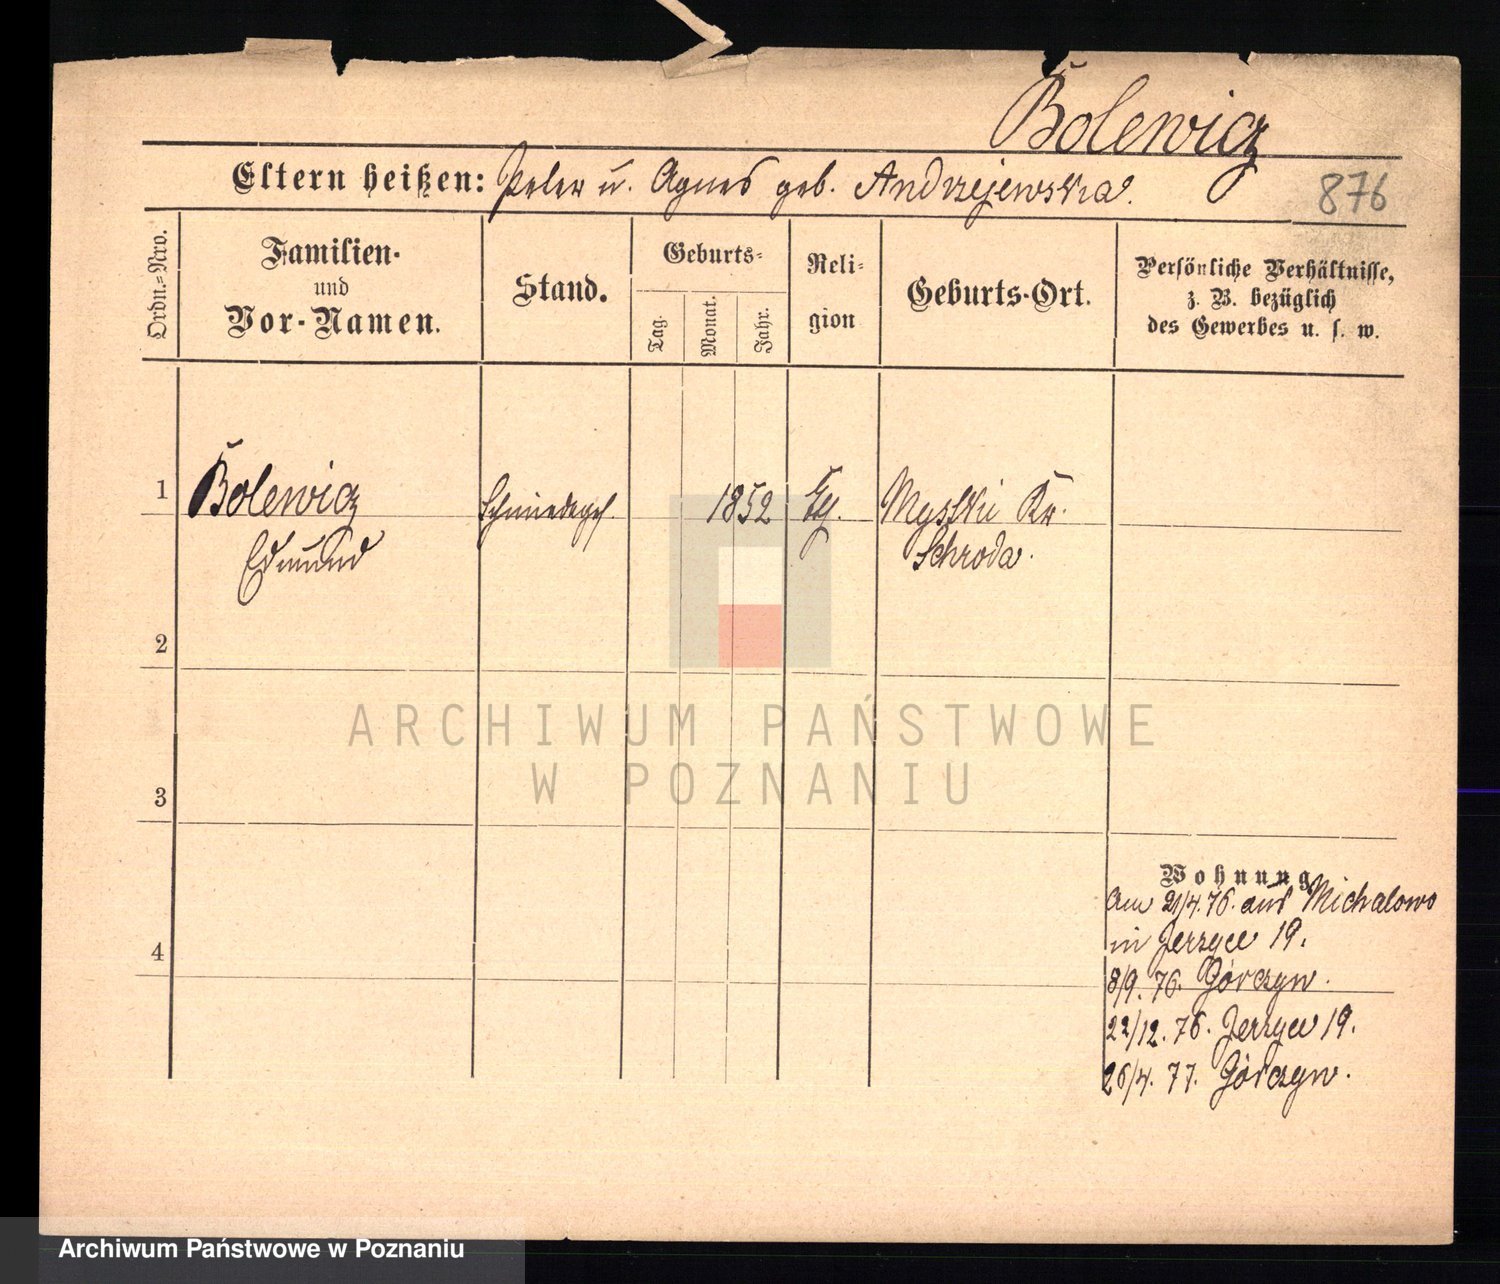 Bolewicz
Eltern heißen: Peter u. Agnes geb. Andrzejewska.
876
Ordn.-Nro.
Familien-
und
Vor-Namen.
Stand.
Geburts-
Tag.
Monat.
Jahr.
Reli-
gion
Geburts-Ort.
Persönliche Verhältnisse,
z. B. bezüglich
des Gewerbes u. s. w.
1
Bolewicz
Edmund
Schmiedeges.
1852
Myszki Kr.
Schroda.
2
3
4
Wohnung
Am 21/4. 76. aus Michalowo
in Jerzyce 19.
8/9. 76. Górczyn.
22/12. 76. Jerzyce 19.
26/4. 77. Górczyn.
ARCHIWUM PAŃSTWOWE
W POZNANIU
Archiwum Państwowe w Poznaniu